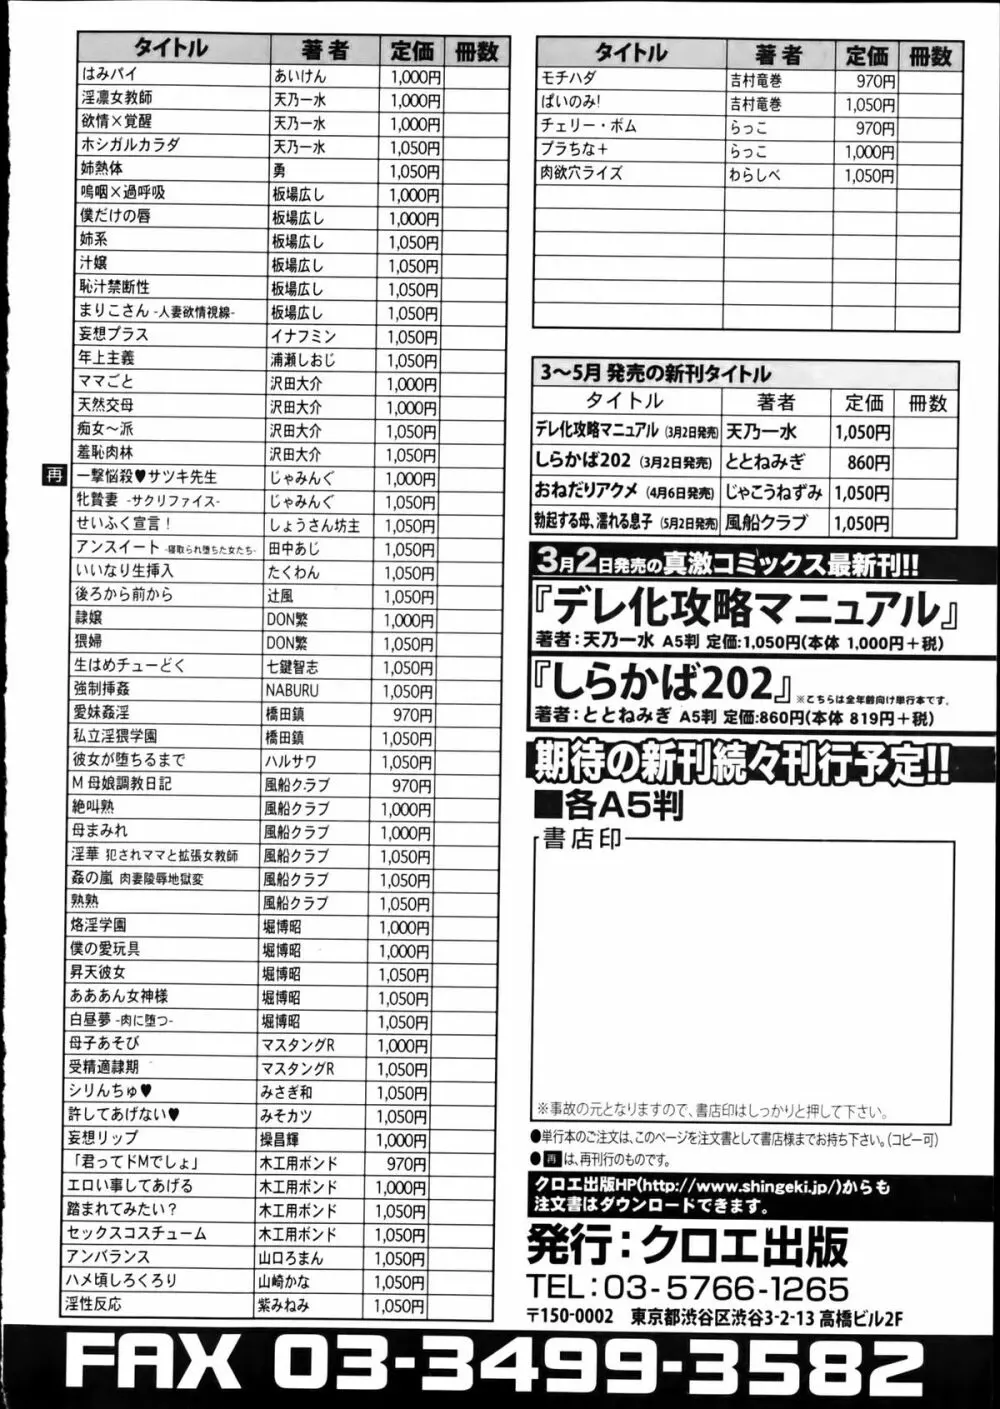 タイトル 著者 定価 冊数
はみパイ あいけん 1,000円
淫凛女教師 天乃一水 1,000円
欲情×覚醒 天乃一水 1,000円
ホシガルカラダ 天乃一水 1,050円
姉熱体 勇 1,050円
嗚咽×過呼吸 板場広し 1,000円
僕だけの唇 板場広し 1,000円
姉系 板場広し 1,050円
汁嬢 板場広し 1,050円
恥汁禁断性 板場広し 1,050円
まりこさん -人妻欲情視線- 板場広し 1,050円
妄想プラス イナフミン 1,050円
年上主義 浦瀬しおじ 1,050円
ママごと 沢田大介 1,000円
天然交母 沢田大介 1,000円
痴女〜派 沢田大介 1,050円
羞恥肉林 沢田大介 1,050円
再 一撃悩殺♥サツキ先生 じゃみんぐ 1,000円
牝贄妻 -サクリファイス- じゃみんぐ 1,050円
せいふく宣言！ しょうさん坊主 1,050円
アンスイート -寝取られ堕ちた女たち- 田中あじ 1,050円
いいなり生挿入 たくわん 1,050円
後ろから前から 辻風 1,050円
隷嬢 DON繁 1,000円
猥婦 DON繁 1,050円
生はめチューどく 七鍵智志 1,050円
強制挿姦 NABURU 1,050円
愛妹姦淫 橋田鎮 970円
私立淫猥学園 橋田鎮 1,050円
彼女が堕ちるまで ハルサワ 1,050円
M 母娘調教日記 風船クラブ 970円
絶叫熟 風船クラブ 1,000円
母まみれ 風船クラブ 1,000円
淫華 犯されママと拡張女教師 風船クラブ 1,050円
姦の嵐 肉妻陵辱地獄変 風船クラブ 1,050円
熟熟 風船クラブ 1,050円
烙淫学園 堀博昭 1,000円
僕の愛玩具 堀博昭 1,000円
昇天彼女 堀博昭 1,050円
あああん女神様 堀博昭 1,050円
白昼夢 -肉に堕つ- 堀博昭 1,050円
母子あそび マスタングR 1,000円
受精適隷期 マスタングR 1,050円
シリんちゅ♥ みさぎ和 1,050円
許してあげない♥ みそカツ 1,050円
妄想リップ 操昌輝 1,000円
「君ってドMでしょ」 木工用ボンド 970円
エロい事してあげる 木工用ボンド 1,000円
踏まれてみたい？ 木工用ボンド 1,050円
セックスコスチューム 木工用ボンド 1,050円
アンバランス 山口ろまん 1,050円
ハメ頃しろくろり 山崎かな 1,050円
淫性反応 紫みねみ 1,050円
タイトル 著者 定価 冊数
モチハダ 吉村竜巻 970円
ぱいのみ! 吉村竜巻 1,050円
チェリー・ボム らっこ 970円
プラちな＋ らっこ 1,000円
肉欲穴ライズ わらしべ 1,050円
3〜5月 発売の新刊タイトル
タイトル 著者 定価 冊数
デレ化攻略マニュアル (3月2日発売) 天乃一水 1,050円
しらかば202 (3月2日発売) ととねみぎ 860円
おねだりアクメ (4月6日発売) じゃこうねずみ 1,050円
勃起する母、濡れる息子 (5月2日発売) 風船クラブ 1,050円
3月2日発売の真激コミックス最新刊!!
『デレ化攻略マニュアル』
著者：天乃一水 A5判 定価:1,050円(本体 1,000円＋税)
『しらかば202』 ※こちらは全年齢向け単行本です。
著者：ととねみぎ A5判 定価:860円(本体 819円＋税)
期待の新刊続々刊行予定!!
■各A5判
書店印
※事故の元となりますので、書店印はしっかりと押して下さい。
●単行本のご注文は、このページを注文書として書店様までお持ち下さい。(コピー可)
●再は、再刊行のものです。
クロエ出版HP(http://www.shingeki.jp/)からも
注文書はダウンロードできます。
発行：クロエ出版
TEL：03-5766-1265
〒150-0002 東京都渋谷区渋谷3-2-13 高橋ビル2F
FAX 03-3499-3582